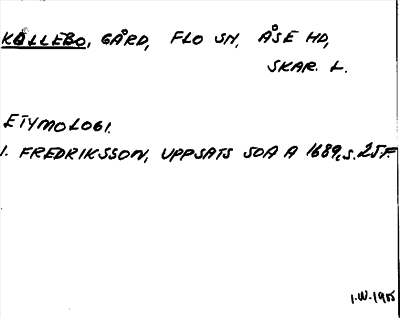 KÅLLEBO, GÅRD, FLO SN, ÅSE HD,
SKAR. L.
ETYMOLOGI.
1. FREDRIKSSON, UPPSATS SOA A 1689, S. 25 F.